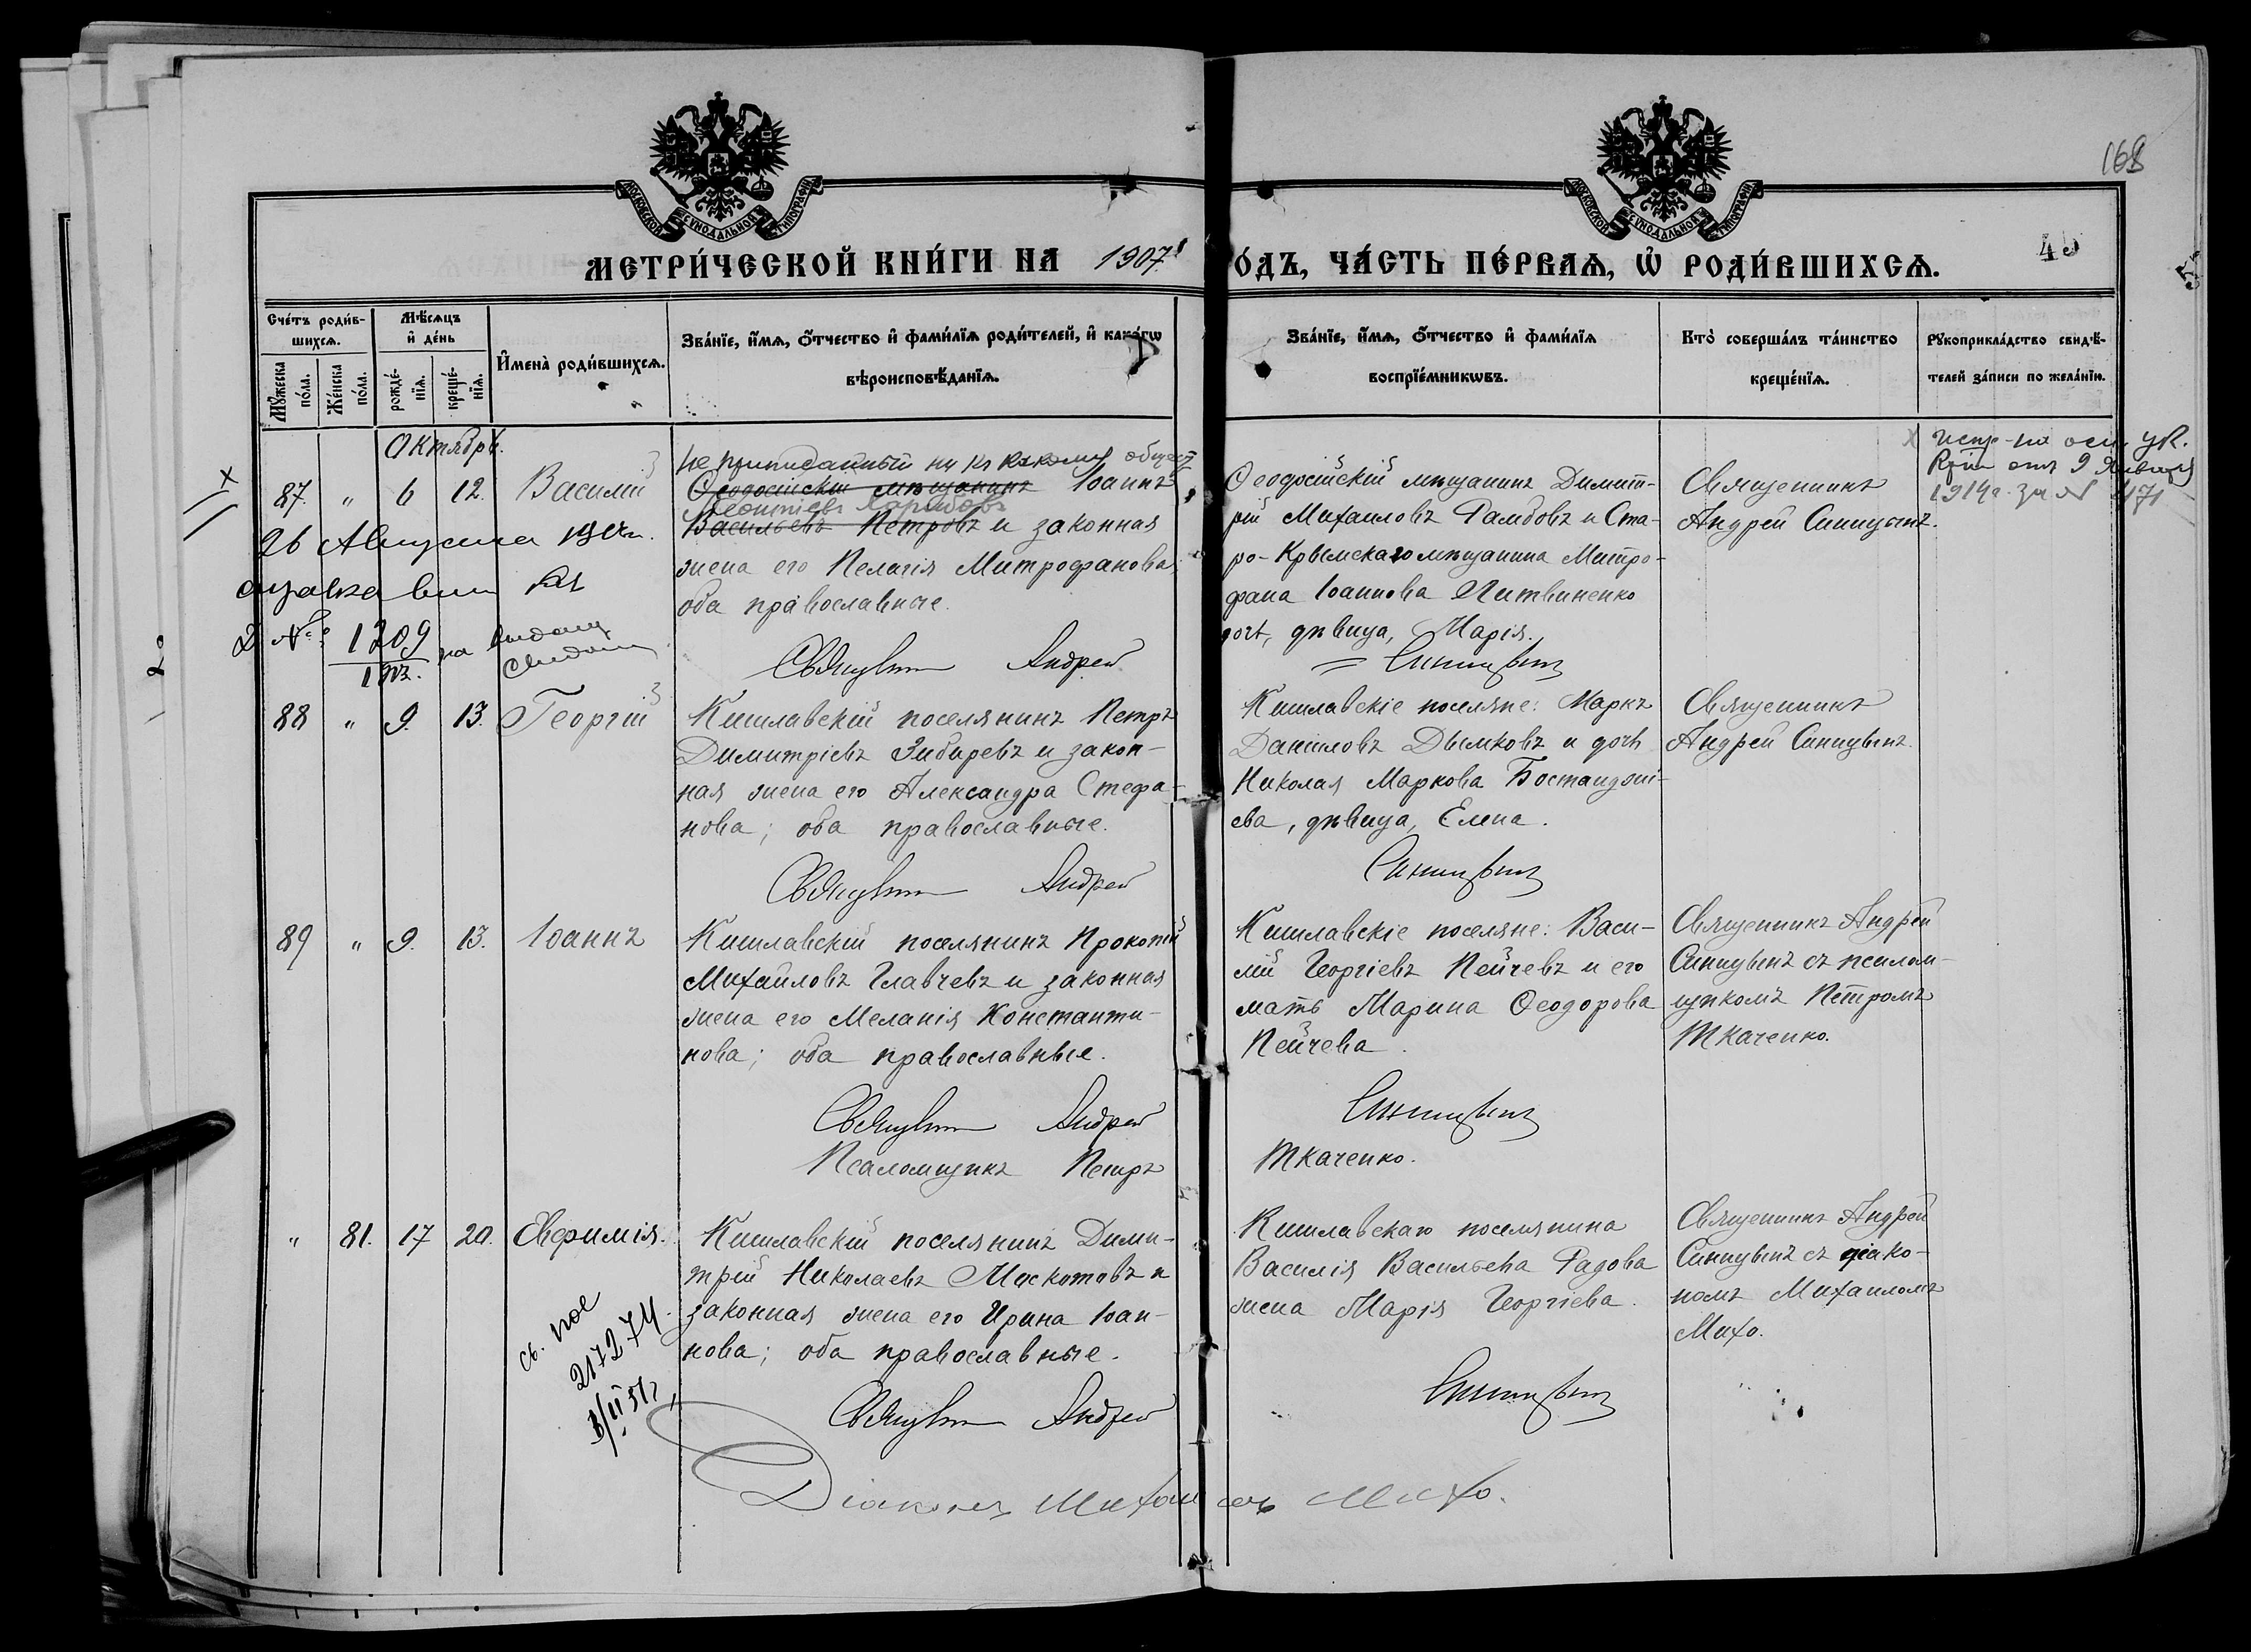 168
МОСКОВСКОЙ СѴНОДАЛЬНОЙ ТИПОГРАФІИ
МОСКОВСКОЙ СѴНОДАЛЬНОЙ ТИПОГРАФІИ
МЕТРИ́ЧЕСКОЙ КНИ́ГИ НА 1907
О́ДЪ, ЧА́СТЬ ПЕ́РВАѦ, Ѡ҆ РОДИ́ВШИХСѦ.
45
Сче́тъ роди́в-
шихсѧ.
Мꙋ́жеска по́ла.
Же́нска по́ла.
Мѣ́сѧцъ
и҆ де́нь
рожде́-
нїѧ.
креще́-
нїѧ.
И҆мена̀ роди́вшихсѧ.
Зва́нїе, и҆́мѧ, ѻ҆́тчество и҆ фами́лїѧ роди́телей, и҆ како́гѡ
вѣроисповѣ́данїѧ.
Зва́нїе, и҆́мѧ, ѻ҆́тчество и҆ фами́лїѧ
воспрїе́мникѡвъ.
Кто̀ соверша́лъ та́инство
креще́нїѧ.
Рꙋкоприкла́дство свидѣ́-
телей за́писи по жела́нїю.
Октябрь.
87. " 6 12. Василій
не приписанный ни къ какому общест.
Ѳеодосійскій мѣщанинъ Іоаннъ
Леонтіевъ
Васильевъ Петровъ и законная
жена его Пелагія Митрофанова,
оба православные.
Священникъ Андрей
Ѳеодосійскій мѣщанинъ Димит-
рій Михаиловъ Рамбовъ и Ста-
ро-Крымскаго мѣщанина Митро-
фана Іоаннова Литвиненко
дочь, дѣвица, Марія.
Синицынъ
Священникъ
Андрей Синицынъ.
Х Испр. на осн. ук.
от 9 Января
1914 г. за № 471
Х
26 Августа
справка
Д № 1209 на выдачу
88 " 9. 13. Георгій
Кишлавскій поселянинъ Петръ
Димитріевъ Зибаревъ и закон-
ная жена его Александра Стефа-
нова; оба православные.
Священникъ Андрей
Кишлавскіе поселяне: Маркъ
Даніиловъ Дымковъ и дочь
Николая Маркова Бостанджі-
ева, дѣвица, Елена.
Синицынъ
Священникъ
Андрей Синицынъ.
89 " 9. 13. Іоаннъ
Кишлавскій поселянинъ Прокопій
Михаиловъ Главчевъ и законная
жена его Меланія Константи-
нова; оба православные.
Священникъ Андрей
Псаломщикъ Петръ
Кишлавскіе поселяне: Васи-
лій Георгіевъ Пейчевъ и его
мать Марина Ѳеодорова
Пейчева.
Синицынъ
Ткаченко.
Священникъ Андрей
Синицынъ съ псалом-
щикомъ Петромъ
Ткаченко.
" 81. 17 20. Евфимія.
Кишлавскій поселянинъ Дими-
трій Николаевъ Москотовъ и
законная жена его Ирина Іоан-
нова; оба православные.
Священникъ Андрей
Кишлавскаго поселянина
Василія Васильева Радова
жена Марія Георгіева.
Синицынъ
Священникъ Андрей
Синицынъ съ діако-
номъ Михаиломъ
Михо.
217274
Діаконъ Михаилъ Михо.